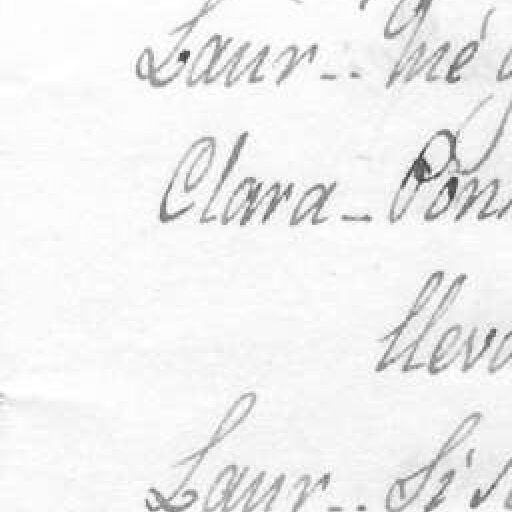 Laur-.. Mé
Clara-Pon
lleva
Laur-.. Si